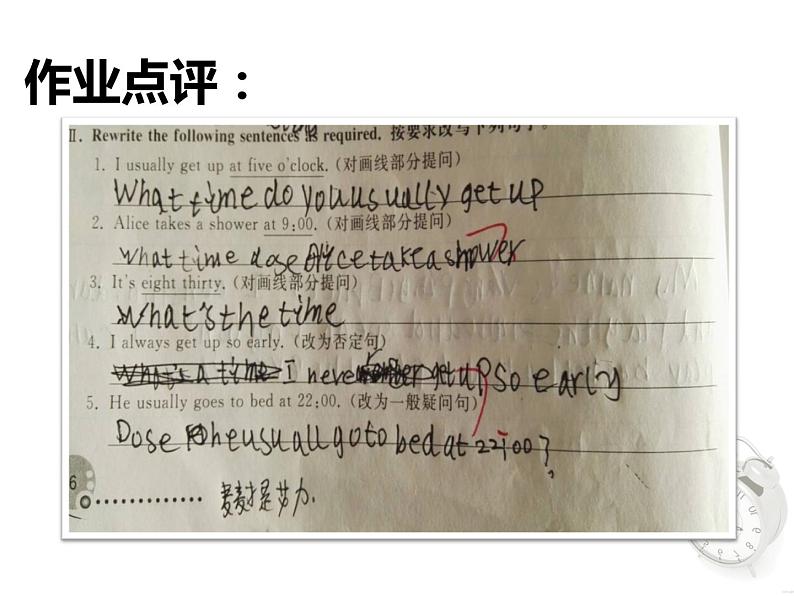 作业点评：
II. Rewrite the following sentences as required. 按要求改写下列句子。
1. I usually get up at five o'clock. (对画线部分提问)
What time do you usually get up
2. Alice takes a shower at 9:00. (对画线部分提问)
What time dose Alice take a shower
3. It's eight thirty. (对画线部分提问)
What's the time
4. I always get up so early. (改为否定句)
I never get up so early
5. He usually goes to bed at 22:00. (改为一般疑问句)
Dose he usuall go to bed at 22:00?
6